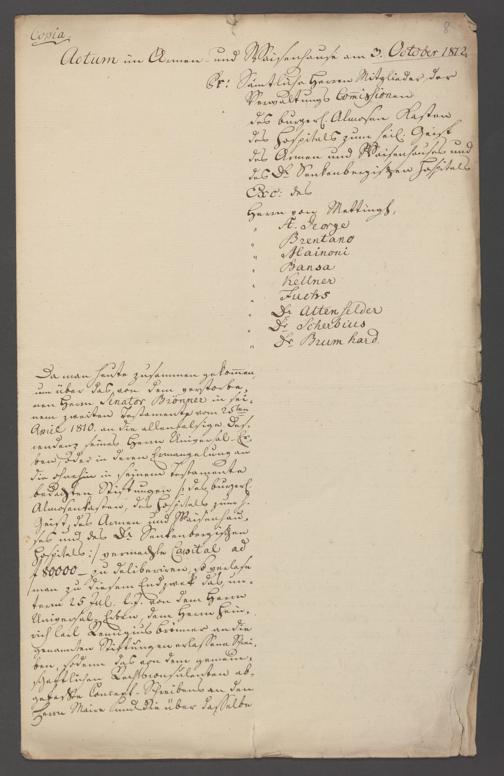 Copia.
8
Actum im Armen- und Waisenhause am 3. October 1812
Sämtliche Herren Mitglieder, der
Verwaltungs Comissionen
des burgerl. Almosen Kasten
des Hospitals zum heil. Geist
des Armen und Waisenhauses und
des Dr. Senkenbergischen Hospitals
Exc: des
Herrn von Mettingh,
" A. George
" Brentano
" Mainoni
" Bansa
" Kellner
" Fuchs
" Dr. Altenfelder
" Dr. Scherbius
" Dr. Brumhard.
Da man heute zusammen gekommen,
um über das von dem verstorbe-
nen Herrn Senator Brönner in sei-
nem zweiten Testamente vom 25ten
April 1810. an die allenfalsige Des-
cendenz seines Herrn Universal-Er-
ben, oder in deren Ermangelung an
die ohnehin in seinem Testamente
bedachten Stiftungen /: des burgerl.
Almosenkasten, des Hospitals zum h.
Geist, des Armen und Waisenhau-
ses und des Dr. Senkenbergischen
Hospitals :/ vermachte Capital ad
f 80,000 — zu deliberiren, so verlase
man zu diesem Endzweck das un-
term 25 Jul. von dem Herrn
Universal-Erben, dem Herrn Hein-
rich Carl Remigius Brönner an die
genannten Stiftungen erlassene Schrei-
ben, sodenn das von dem gemein-
schaftlichen Rechtsconsulenten ab-
gefaßte Concept-Schreibens an den
Herrn Maire und die über dasselbe